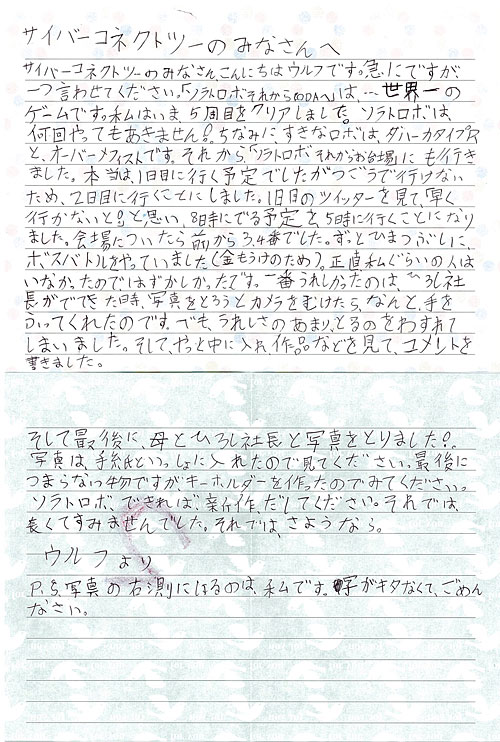 サイバーコネクトツーのみなさんへ
サイバーコネクトツーのみなさん、こんにちはウルフです。急にですが、
一つ言わせてください。「ソラトロボそれからCODAへ」は、…世界一の
ゲームです。私はいま5周目をクリアしました。ソラトロボは、
何回やってもあきません！ちなみにすきなロボは、ダハーカタイプⅡ
と、オーバーメフィストです。それから、「ソラトロボそれからお台場」にも行き
ました。本当は、1日目に行く予定でしたがつごうで行けない
ため、2日目に行くことにしました。1日目のツイッターを見て、「早く
行かないと！」と思い、8時にでる予定を、5時に行くことになり
ました。会場についたら前から3、4番でした。ずっとひまつぶしに、
ボスバトルをやっていました(金もうけのため)。正直私ぐらいの人は
いなかったのではずかしかったです。一番うれしかったのは、ひろし社
長がでてきた時、写真をとろうとカメラをむけたら、なんと、手を
ふってくれたのです。でも、うれしさのあまり、とるのをわすれて
しまいました。そして、やっと中に入れ、作品などを見て、コメントを
書きました。
そして最後に、母とひろし社長と写真をとりました！
写真は、手紙といっしょに入れたので見てください。最後に
つまらない物ですがキーホルダーを作ったのでみてください。
ソラトロボ、できれば、新作、だしてください。それでは、
長くてすみませんでした。それでは、さようなら。
ウルフより
P.S.写真の右側にはるのは、私です。字がキタなくて、ごめん
なさい。